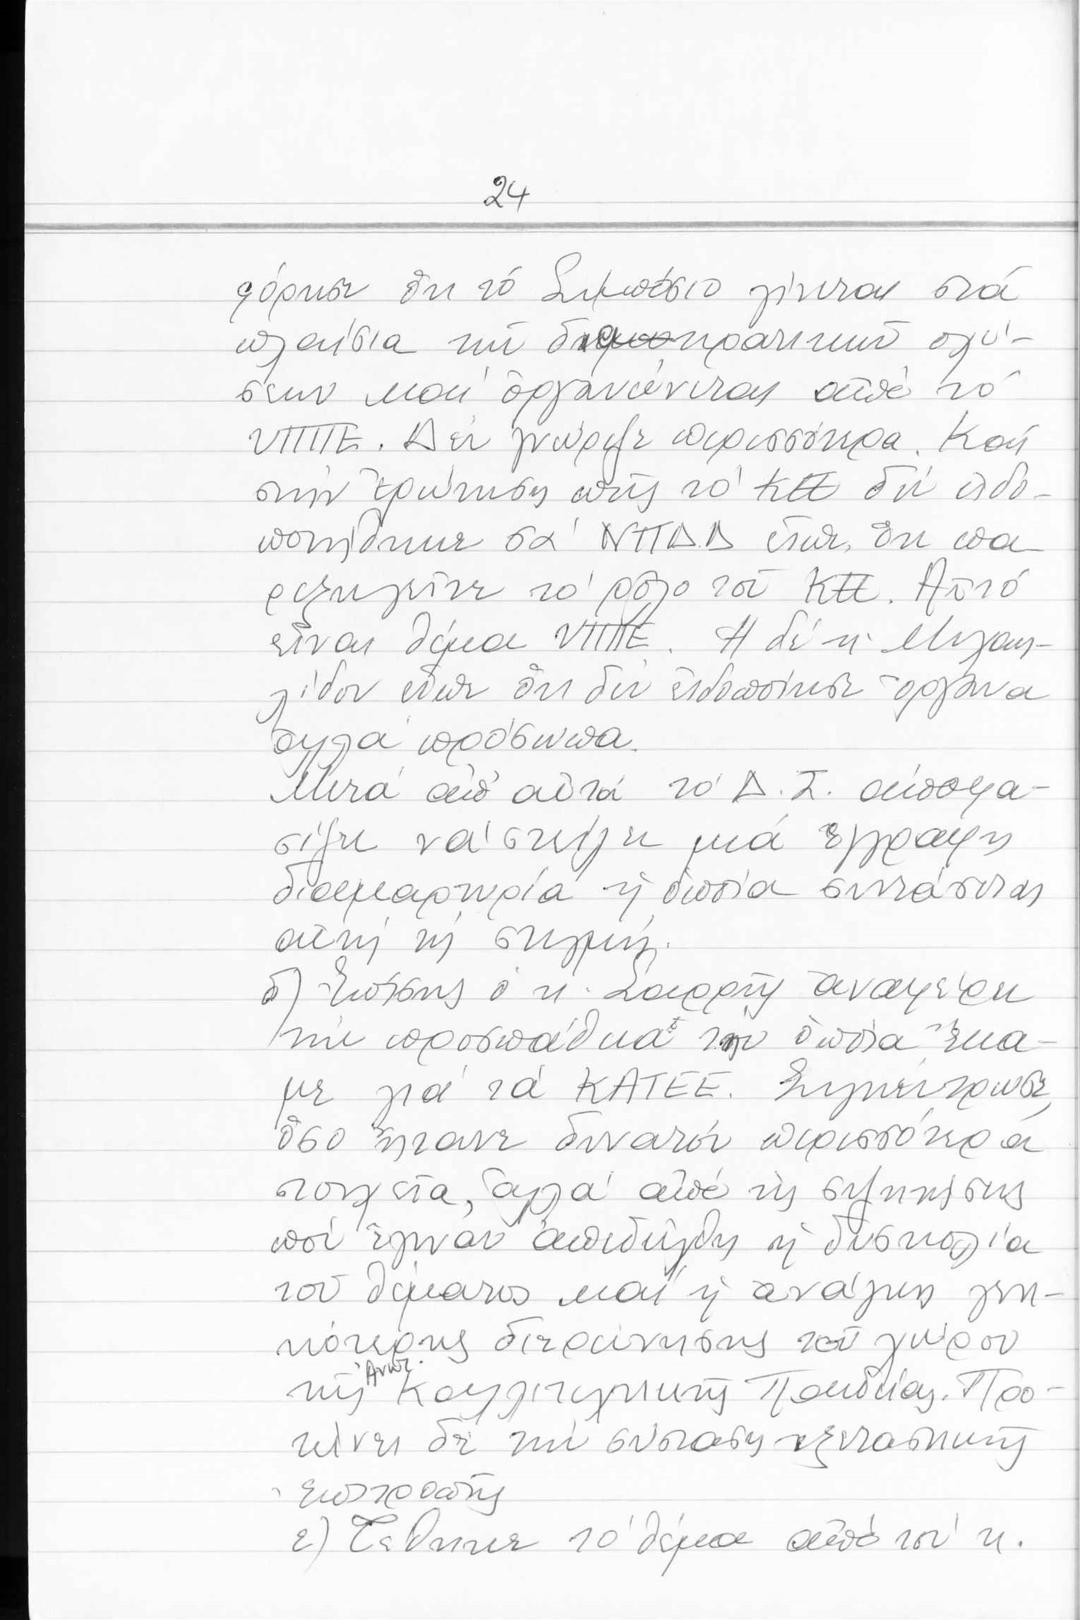 24
φόρησε ὅτι τό Συμπόσιο γίνεται στά
πλαίσια τῶν διακρατικῶν σχέ-
σεων καί ὀργανώνεται ἀπό τό
ΥΠΠΕ. Δέν γνώριζε περισσότερα. Καί
στήν ἐρώτηση πῶς τό ΚΕΕ δέν εἰδο-
ποιήθηκε σά ΝΠΔΔ εἶπε, ὅτι πα
ρεξηγεῖτε τό ρόλο τοῦ ΚΕΕ. Αὐτό
εἶναι θέμα ΥΠΠΕ. Ἡ δέ κ. Μιχαη-
λίδου εἶπε ὅτι δέν εἰδοποίησε ὄργανα
ἀλλά πρόσωπα.
Μετά ἀπ' αὐτά τό Δ.Σ. ἀποφα-
σίζει νά στείλει μιά ἔγγραφη
διαμαρτυρία ἡ ὁποία συντάσεται
αὐτή τή στιγμή.
δ) Ἐπίσης ὁ κ. Σαρρῆς ἀναφέρει
τήν προσπάθεια τήν ὁποία ἔκα-
με γιά τά ΚΑΤΕΕ. Συγκέντρωσε,
ὅσο ἤτανε δυνατόν περισσότερα
στοιχεῖα, ἀλλά ἀπό τίς συζητήσεις
πού ἔγιναν ἀπεδείχθη ἡ δυσκολία
τοῦ θέματος καί ἡ ἀνάγκη γενι-
κότερης διερεύνησης τοῦ χώρου
τῆς Ἀνωτ. Καλλιτεχνικῆς Παιδείας. Προ-
τείνει δέ τήν σύσταση ἐξεταστικῆς
ἐπιτροπῆς
ε) Τέθηκε τό θέμα ἀπό τόν κ.